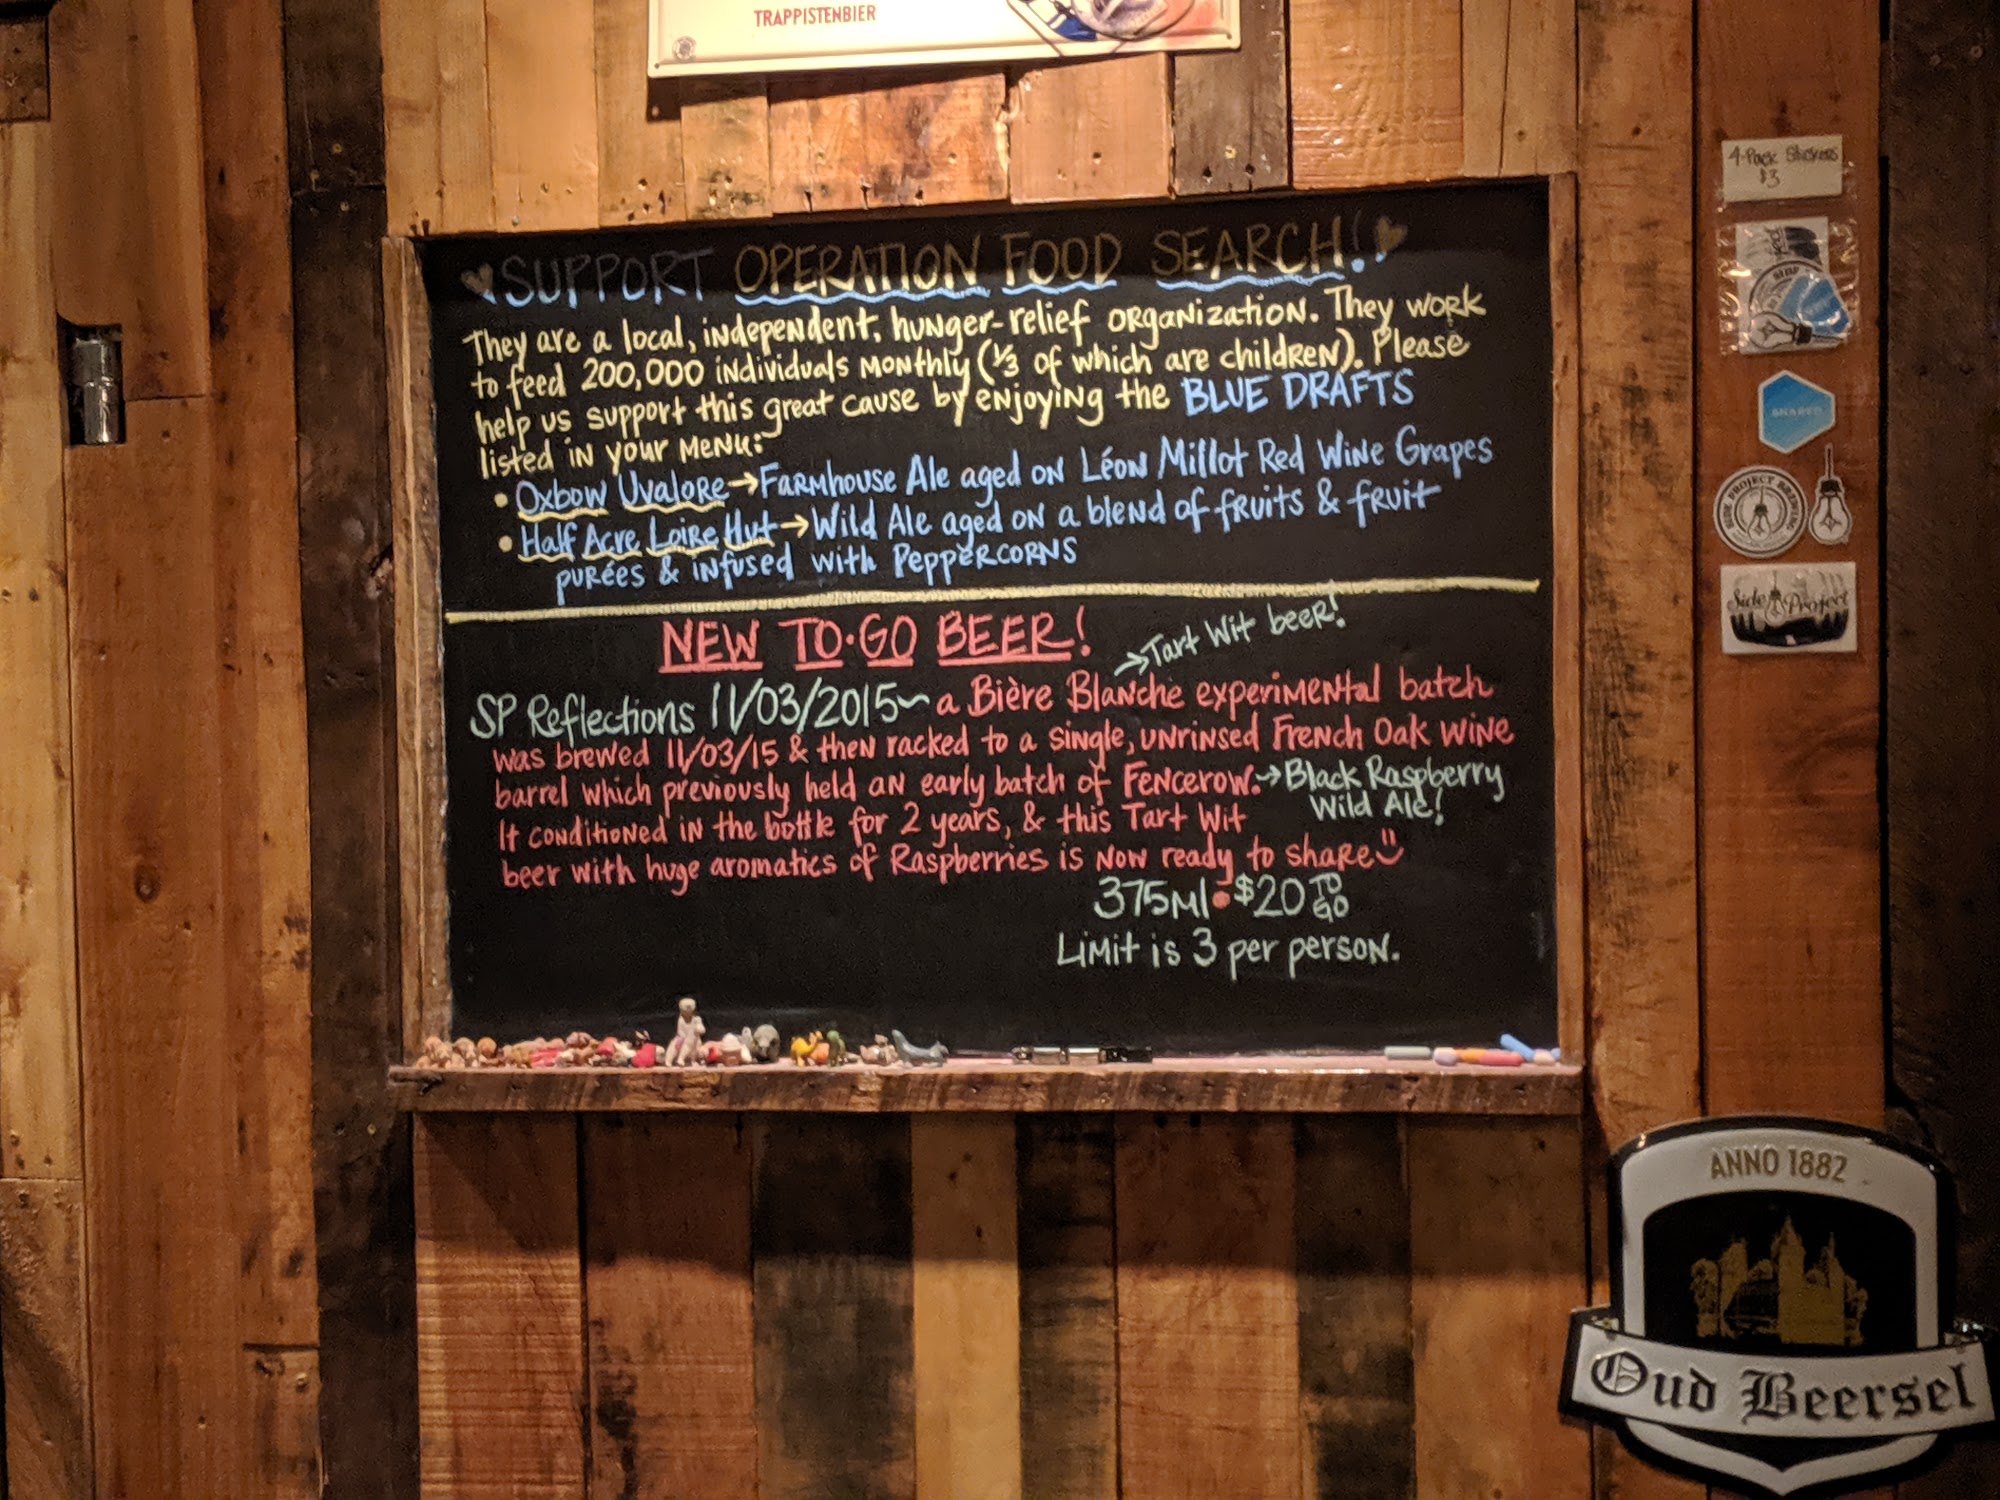 TRAPPISTENBIER
SUPPORT OPERATION FOOD SEARCH!
They are a local, independent, hunger-relief organization. They work
to feed 200,000 individuals monthly (1/3 of which are children). Please
help us support this great cause by enjoying the BLUE DRAFTS
listed in your menu:
• Oxbow Uvalore → Farmhouse Ale aged on Léon Millot Red Wine Grapes
• Half Acre Loire Hut → Wild Ale aged on a blend of fruits & fruit
purées & infused with Peppercorns
NEW TO-GO BEER!
→ Tart Wit beer!
SP Reflections 11/03/2015~ a Bière Blanche experimental batch
was brewed 11/03/15 & then racked to a single, unrinsed French Oak wine
barrel which previously held an early batch of Fencerow. → Black Raspberry
Wild Ale!
It conditioned in the bottle for 2 years, & this Tart Wit
beer with huge aromatics of Raspberries is now ready to share
375ml • $20 TO GO
Limit is 3 per person.
4-Pack Stickers
$3
SHARED
SIDE PROJECT BREWING
Side Project
ANNO 1882
Oud Beersel